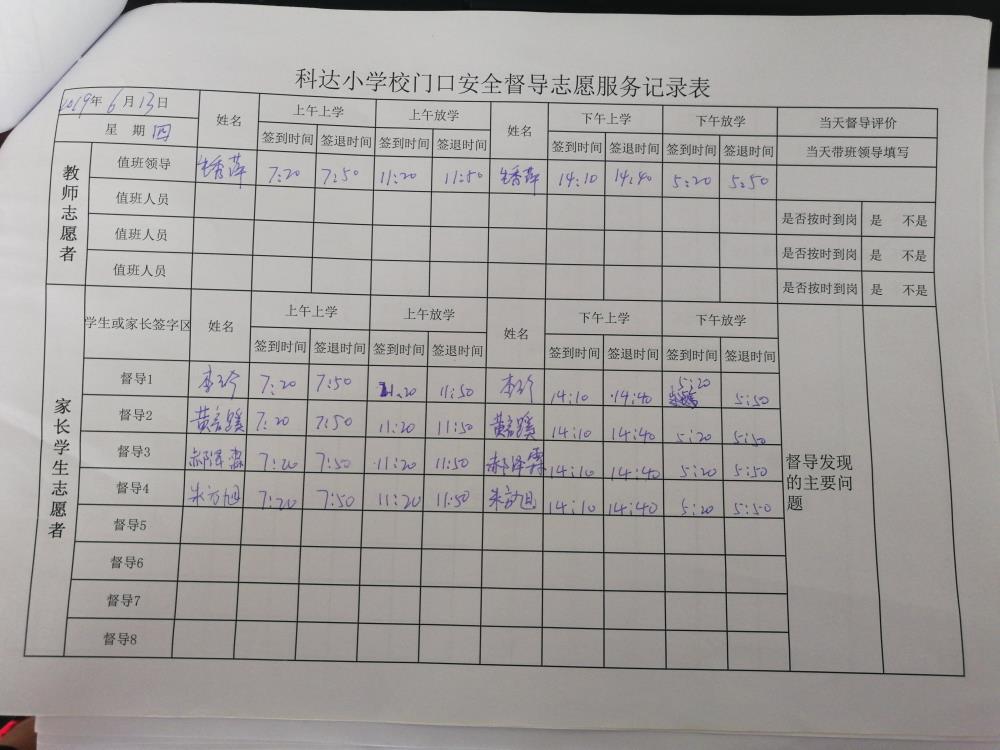 科达小学校门口安全督导志愿服务记录表
2019年6月13日 姓名 上午上学 上午放学 姓名 下午上学 下午放学 当天督导评价
星 期 四 签到时间 签退时间 签到时间 签退时间 签到时间 签退时间 签到时间 签退时间 当天带班领导填写
教师志愿者
值班领导 7:20 7:50 11:20 11:50 14:10 14:40 5:20 5:50
值班人员 是否按时到岗 是 不是
值班人员 是否按时到岗 是 不是
值班人员 是否按时到岗 是 不是
家长学生志愿者
学生或家长签字区 姓名 上午上学 上午放学 姓名 下午上学 下午放学
签到时间 签退时间 签到时间 签退时间 签到时间 签退时间 签到时间 签退时间
督导1 7:20 7:50 11:20 11:50 14:10 14:40 5:20 5:50
督导2 7:20 7:50 11:20 11:50 14:10 14:40 5:20 5:50
督导3 7:20 7:50 11:20 11:50 郝泽霖 14:10 14:40 5:20 5:50
督导4 朱方旭 7:20 7:50 11:20 11:50 朱方旭 14:10 14:40 5:20 5:50
督导5
督导6
督导7
督导8
督导发现
的主要问
题